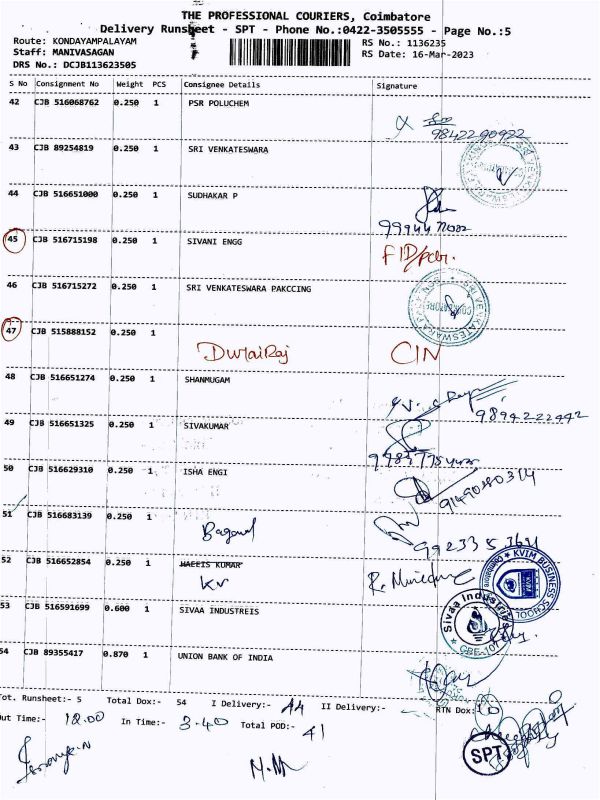 THE PROFESSIONAL COURIERS, Coimbatore
Delivery Runsheet - SPT - Phone No.:0422-3505555 - Page No.:5
Route: KONDAYAMPALAYAM
RS No.: 1136235
Staff: MANIVASAGAN
RS Date: 16-Mar-2023
DRS No.: DCJB113623505
S No Consignment No Weight PCS Consignee Details Signature
42 CJB 516068762 0.250 1 PSR POLUCHEM
9842290922
43 CJB 89254819 0.250 1 SRI VENKATESWARA
44 CJB 516651000 0.250 1 SUDHAKAR P
45 CJB 516715198 0.250 1 SIVANI ENGG
46 CJB 516715272 0.250 1 SRI VENKATESWARA PAKCCING
47 CJB 515888152 0.250 1
DuraiRaj CIN
48 CJB 516651274 0.250 1 SHANMUGAM
9894222442
49 CJB 516651325 0.250 1 SIVAKUMAR
50 CJB 516629310 0.250 1 ISHA ENGI
51 CJB 516683139 0.250 1
52 CJB 516652854 0.250 1 HAEEIS KUMAR
KV
KVIM BUSINESS SCHOOL
53 CJB 516591699 0.600 1 SIVAA INDUSTREIS
Sivaa Industries
CBE-107
54 CJB 89355417 0.870 1 UNION BANK OF INDIA
Tot. Runsheet:- 5 Total Dox:- 54 I Delivery:- 44 II Delivery:- RTN Dox: 10
Out Time:- 12.00 In Time:- 3.40 Total POD:- 41
SPT